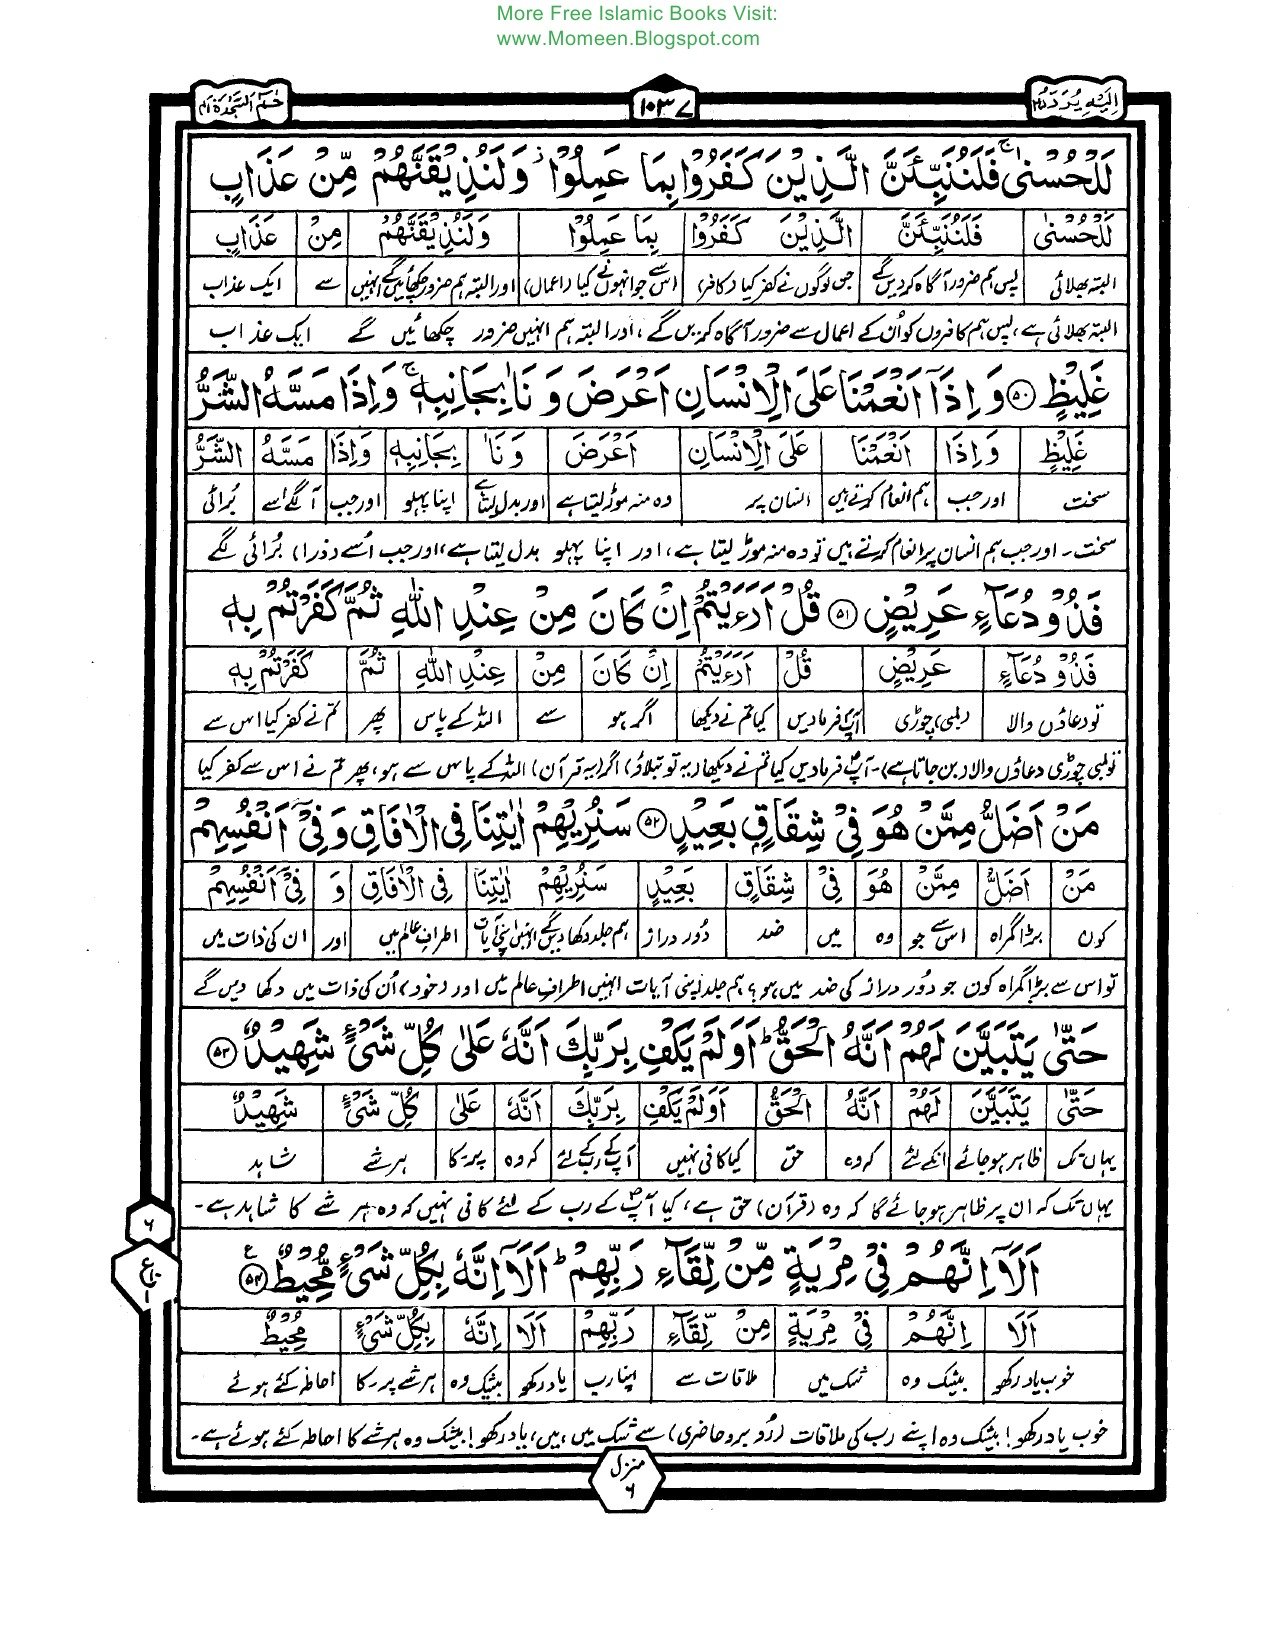 More Free Islamic Books Visit:
www.Momeen.Blogspot.com
اِلَیْهِ یُرَدُّ ۲۵
۱۰۳۷
حٰمٓ السَّجْدَة ۴۱
لَلْحُسْنٰى ۚ فَلَنُنَبِّئَنَّ الَّذِیْنَ كَفَرُوْا بِمَا عَمِلُوْا ۫ وَلَنُذِیْقَنَّهُمْ مِّنْ عَذَابٍ
لَلْحُسْنٰى فَلَنُنَبِّئَنَّ الَّذِیْنَ كَفَرُوْا بِمَا عَمِلُوْا وَلَنُذِیْقَنَّهُمْ مِنْ عَذَابٍ
البتہ بھلائی پس ہم ضرور آگاہ کردیں گے جن لوگوں نے کفر کیا (کافر) اس سے جو انہوں نے کیا (اعمال) اور البتہ ہم ضرور چکھائیں گے انہیں سے ایک عذاب
البتہ بھلائی ہے، پس ہم کافروں کو اُن کے اعمال سے ضرور آگاہ کریں گے، اور البتہ ہم انہیں ضرور چکھائیں گے ایک عذاب
غَلِیْظٍ ۵۰ وَاِذَاۤ اَنْعَمْنَا عَلَى الْاِنْسَانِ اَعْرَضَ وَنَاٰ بِجَانِبِهٖ ۚ وَاِذَا مَسَّهُ الشَّرُّ
غَلِیْظٍ وَاِذَا اَنْعَمْنَا عَلَى الْاِنْسَانِ اَعْرَضَ وَنَاٰ بِجَانِبِهٖ وَاِذَا مَسَّهُ الشَّرُّ
سخت اور جب ہم انعام کرتے ہیں انسان پر وہ منہ موڑ لیتا ہے اور بدل لیتا ہے اپنا پہلو اور جب آ لگے اسے بُرائی
سخت۔ اور جب ہم انسان پر انعام کرتے ہیں تو وہ منہ موڑ لیتا ہے، اور اپنا پہلو بدل لیتا ہے، اور جب اُسے (ذرا) بُرائی لگے
فَذُوْ دُعَآءٍ عَرِیْضٍ ۵۱ قُلْ اَرَءَیْتُمْ اِنْ كَانَ مِنْ عِنْدِ اللّٰهِ ثُمَّ كَفَرْتُمْ بِهٖ
فَذُوْ دُعَآءٍ عَرِیْضٍ قُلْ اَرَءَیْتُمْ اِنْ كَانَ مِنْ عِنْدِ اللّٰهِ ثُمَّ كَفَرْتُمْ بِهٖ
تو دعاؤں والا (لمبی) چوڑی آپؐ فرمادیں کیا تم نے دیکھا اگر ہو سے اللہ کے پاس پھر تم نے کفر کیا اس سے
تو لمبی چوڑی دعاؤں والا (بن جاتا ہے)۔ آپؐ فرمادیں کیا تم نے دیکھا (یہ تو بتلاؤ) اگر (یہ قرآن) اللہ کے پاس سے ہو، پھر تم نے اس سے کفر کیا
مَنْ اَضَلُّ مِمَّنْ هُوَ فِیْ شِقَاقٍۭ بَعِیْدٍ ۵۲ سَنُرِیْهِمْ اٰیٰتِنَا فِی الْاٰفَاقِ وَفِیْۤ اَنْفُسِهِمْ
مَنْ اَضَلُّ مِمَّنْ هُوَ فِیْ شِقَاقٍ بَعِیْدٍ سَنُرِیْهِمْ اٰیٰتِنَا فِی الْاٰفَاقِ وَ فِیْۤ اَنْفُسِهِمْ
کون بڑا گمراہ اس سے جو وہ میں ضد دُور دراز ہم جلد دکھا دیں گے انہیں اپنی آیات اطرافِ عالم میں اور ان کی ذات میں
تو اس سے بڑا گمراہ کون جو دُور دراز کی ضد میں ہو؟ ہم جلد اپنی آیات انہیں اطرافِ عالم میں اور (خود) اُن کی ذات میں دکھا دیں گے
حَتّٰى یَتَبَیَّنَ لَهُمْ اَنَّهُ الْحَقُّ ؕ اَوَلَمْ یَكْفِ بِرَبِّكَ اَنَّهٗ عَلٰى كُلِّ شَیْءٍ شَهِیْدٌ ۵۳
حَتّٰى یَتَبَیَّنَ لَهُمْ اَنَّهُ الْحَقُّ اَوَلَمْ یَكْفِ بِرَبِّكَ اَنَّهٗ عَلٰى كُلِّ شَیْءٍ شَهِیْدٌ
یہاں تک ظاہر ہوجائے انکے لئے کہ وہ حق کیا کافی نہیں آپؐ کے رب کے لئے کہ وہ پر۔ کا ہر شے شاہد
یہاں تک کہ ان پر ظاہر ہوجائے گا کہ وہ (قرآن) حق ہے، کیا آپؐ کے رب کے لئے کافی نہیں کہ وہ ہر شے کا شاہد ہے۔
اَلَاۤ اِنَّهُمْ فِیْ مِرْیَةٍ مِّنْ لِّقَآءِ رَبِّهِمْ ؕ اَلَاۤ اِنَّهٗ بِكُلِّ شَیْءٍ مُّحِیْطٌ ۵۴ ع
اَلَا اِنَّهُمْ فِیْ مِرْیَةٍ مِنْ لِّقَآءِ رَبِّهِمْ اَلَا اِنَّهٗ بِكُلِّ شَیْءٍ مُحِیْطٌ
خوب یاد رکھو بیشک وہ شک میں ملاقات سے اپنا رب یاد رکھو بیشک وہ ہر شے پر۔ کا احاطہ کئے ہوئے
خوب یاد رکھو! بیشک وہ اپنے رب کی ملاقات (رُو برو حاضری) سے شک میں ہیں، یاد رکھو! بیشک وہ ہر شے کا احاطہ کئے ہوئے ہے۔
۶
ع
۱
منزل
۶